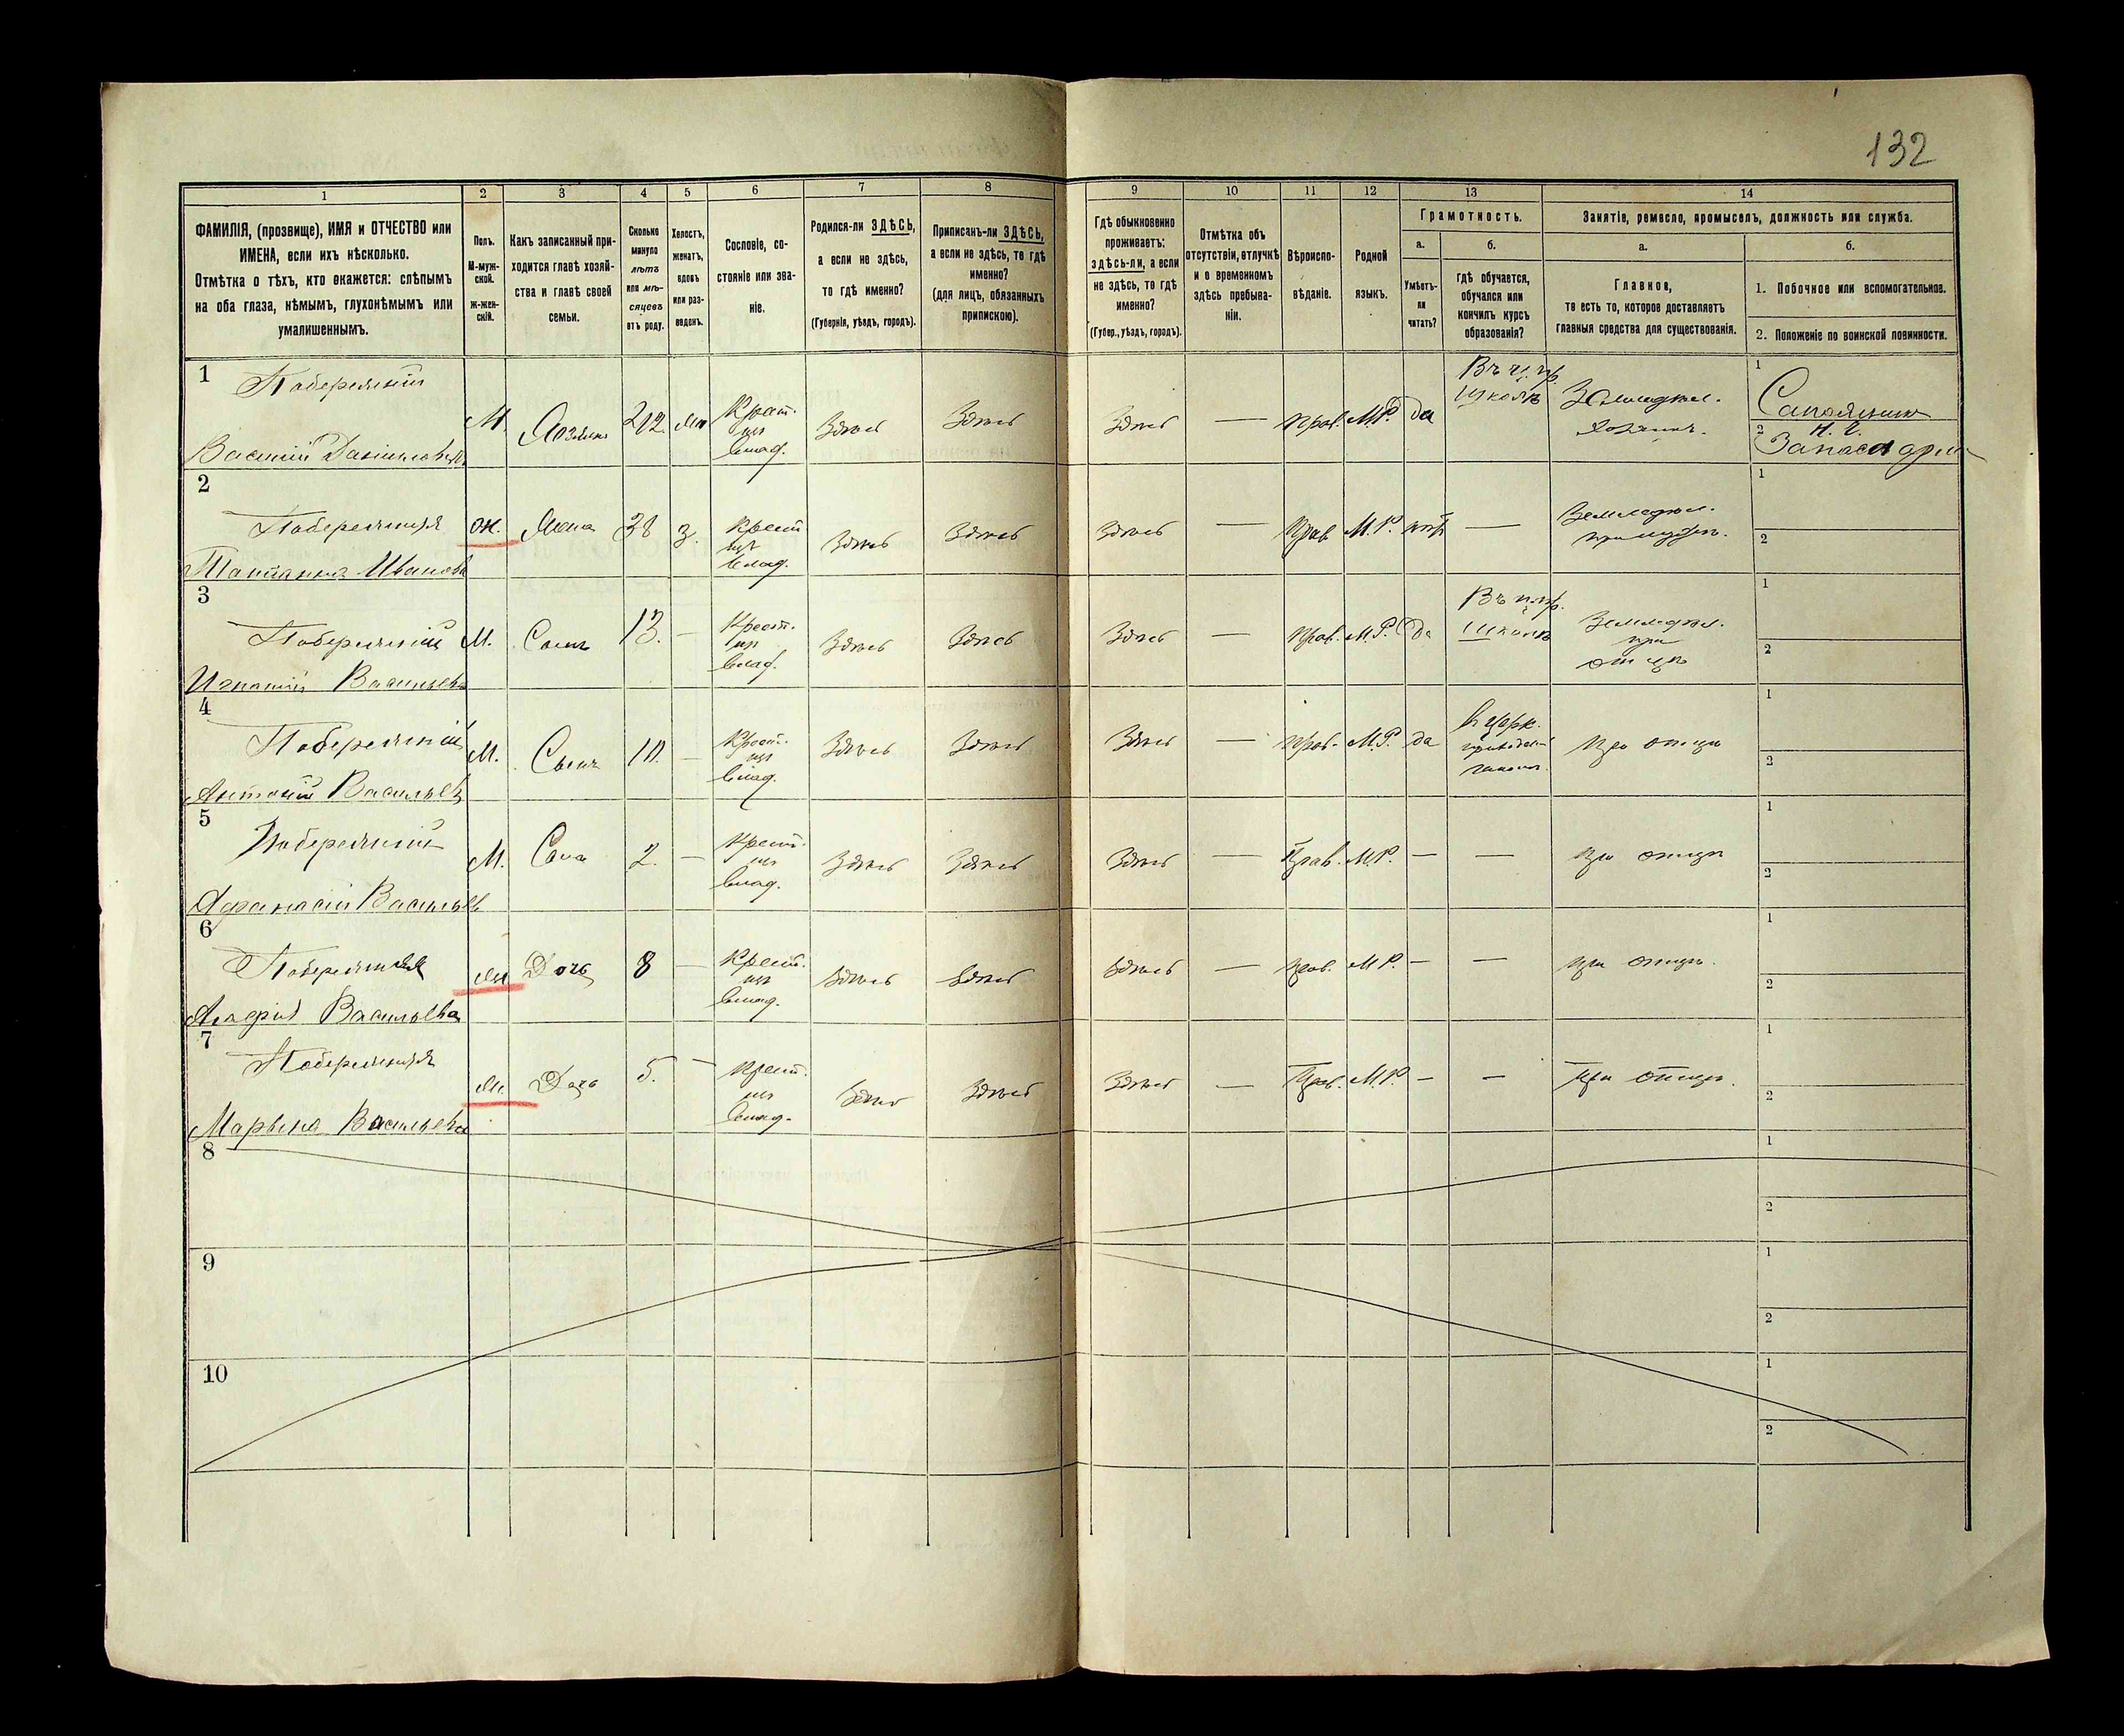 132
1 2 3 4 5 6 7 8 9 10 11 12 13 14
ФАМИЛІЯ, (прозвище), ИМЯ и ОТЧЕСТВО или
ИМЕНА, если ихъ нѣсколько.
Отмѣтка о тѣхъ, кто окажется: слѣпымъ
на оба глаза, нѣмымъ, глухонѣмымъ или
умалишеннымъ.
Полъ.
М-муж-
ской.
Ж-жен-
скій.
Какъ записанный при-
ходится главѣ хозяй-
ства и главѣ своей
семьи.
Сколько
минуло
лѣтъ
или мѣ-
сяцевъ
отъ роду.
Холостъ,
женатъ,
вдовъ
или раз-
веденъ.
Сословіе, со-
стояніе или зва-
ніе.
Родился-ли ЗДѢСЬ,
а если не здѣсь,
то гдѣ именно?
(Губернія, уѣздъ, городъ).
Приписанъ-ли ЗДѢСЬ,
а если не здѣсь, то гдѣ
именно?
(для лицъ, обязанныхъ
припискою).
Гдѣ обыкновенно
проживаетъ:
здѣсь-ли, а если
не здѣсь, то гдѣ
именно?
(Губер., уѣздъ, городъ).
Отмѣтка объ
отсутствіи, отлучкѣ
и о временномъ
здѣсь пребыва-
ніи.
Вѣроиспо-
вѣданіе.
Родной
языкъ.
Грамотность.
а.
Умѣетъ-
ли
читать?
б.
Гдѣ обучается,
обучался или
кончилъ курсъ
образованія?
Занятіе, ремесло, промыселъ, должность или служба.
а.
Главное,
то есть то, которое доставляетъ
главныя средства для существованія.
б.
1. Побочное или вспомогательное.
2. Положеніе по воинской повинности.
1
Побережній
Василій Даниловъ
М. Хозяинъ
Крест.
из
влад.
Здѣсь Здѣсь Здѣсь — прав. М.Р. да
школѣ
Землед.
хозяинъ.
1
2
2
Побережняя
Татьяна Иванова
Ж. Жена 38 з.
Крест
из
влад.
Здѣсь Здѣсь Здѣсь — Прав. М.Р. нѣтъ —
Землед.
при мужѣ.
1
2
3
Побережній
Игнатій Васильевъ
М. Сынъ 13. —
Крест.
из
влад.
Здѣсь Здѣсь Здѣсь — прав. М.Р. да
школѣ
Землед.
при
отцѣ
1
2
4
Побережній
Антоній Васильевъ
М. Сынъ 10. —
Крест.
из
влад.
Здѣсь Здѣсь Здѣсь — прав. М.Р. да
в церк.
при отцѣ
1
2
5
Побережній
Афанасій Васильевъ
М. Сынъ 2. —
Крест.
из
влад.
Здѣсь Здѣсь Здѣсь — Прав. М.Р. — —
при отцѣ
1
2
6
Побережняя
Васильева
ж Дочь 8 —
Крест.
из
влад.
Здѣсь Здѣсь Здѣсь — прав. М.Р. — —
при отцѣ.
1
2
7
Побережняя
Марьяна Васильева
ж Дочь 5. —
Крест.
из
влад.
Здѣсь Здѣсь Здѣсь — Прав. М.Р. — —
при отцѣ.
1
2
8
1
2
9
1
2
10
1
2